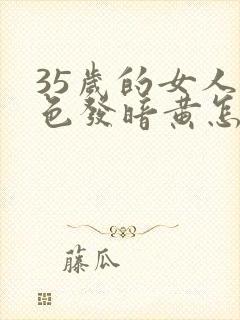 35歲的女人
色發暗黃怎
藤瓜